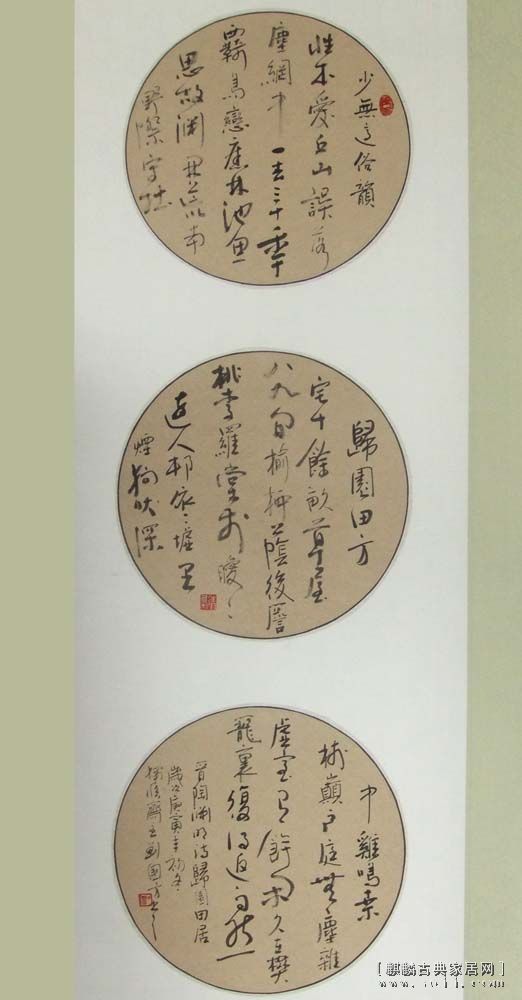 少無適俗韻
性本愛丘山誤落
塵網中一去三十年
羈鳥戀舊林池魚
思故渊開荒南
野際守拙
歸園田方
宅十餘畝草屋
八九間榆柳蔭後簷
桃李羅堂前曖々
遠人村依々墟里
煙狗吠深
中雞鳴桑
樹巔戶庭無塵雜
虛室有餘閑久在樊
籠裏復得返自然一
晉陶渊明詩歸園田居
歲次庚寅年初冬
劉國方書之
[麒麟古典家居网]